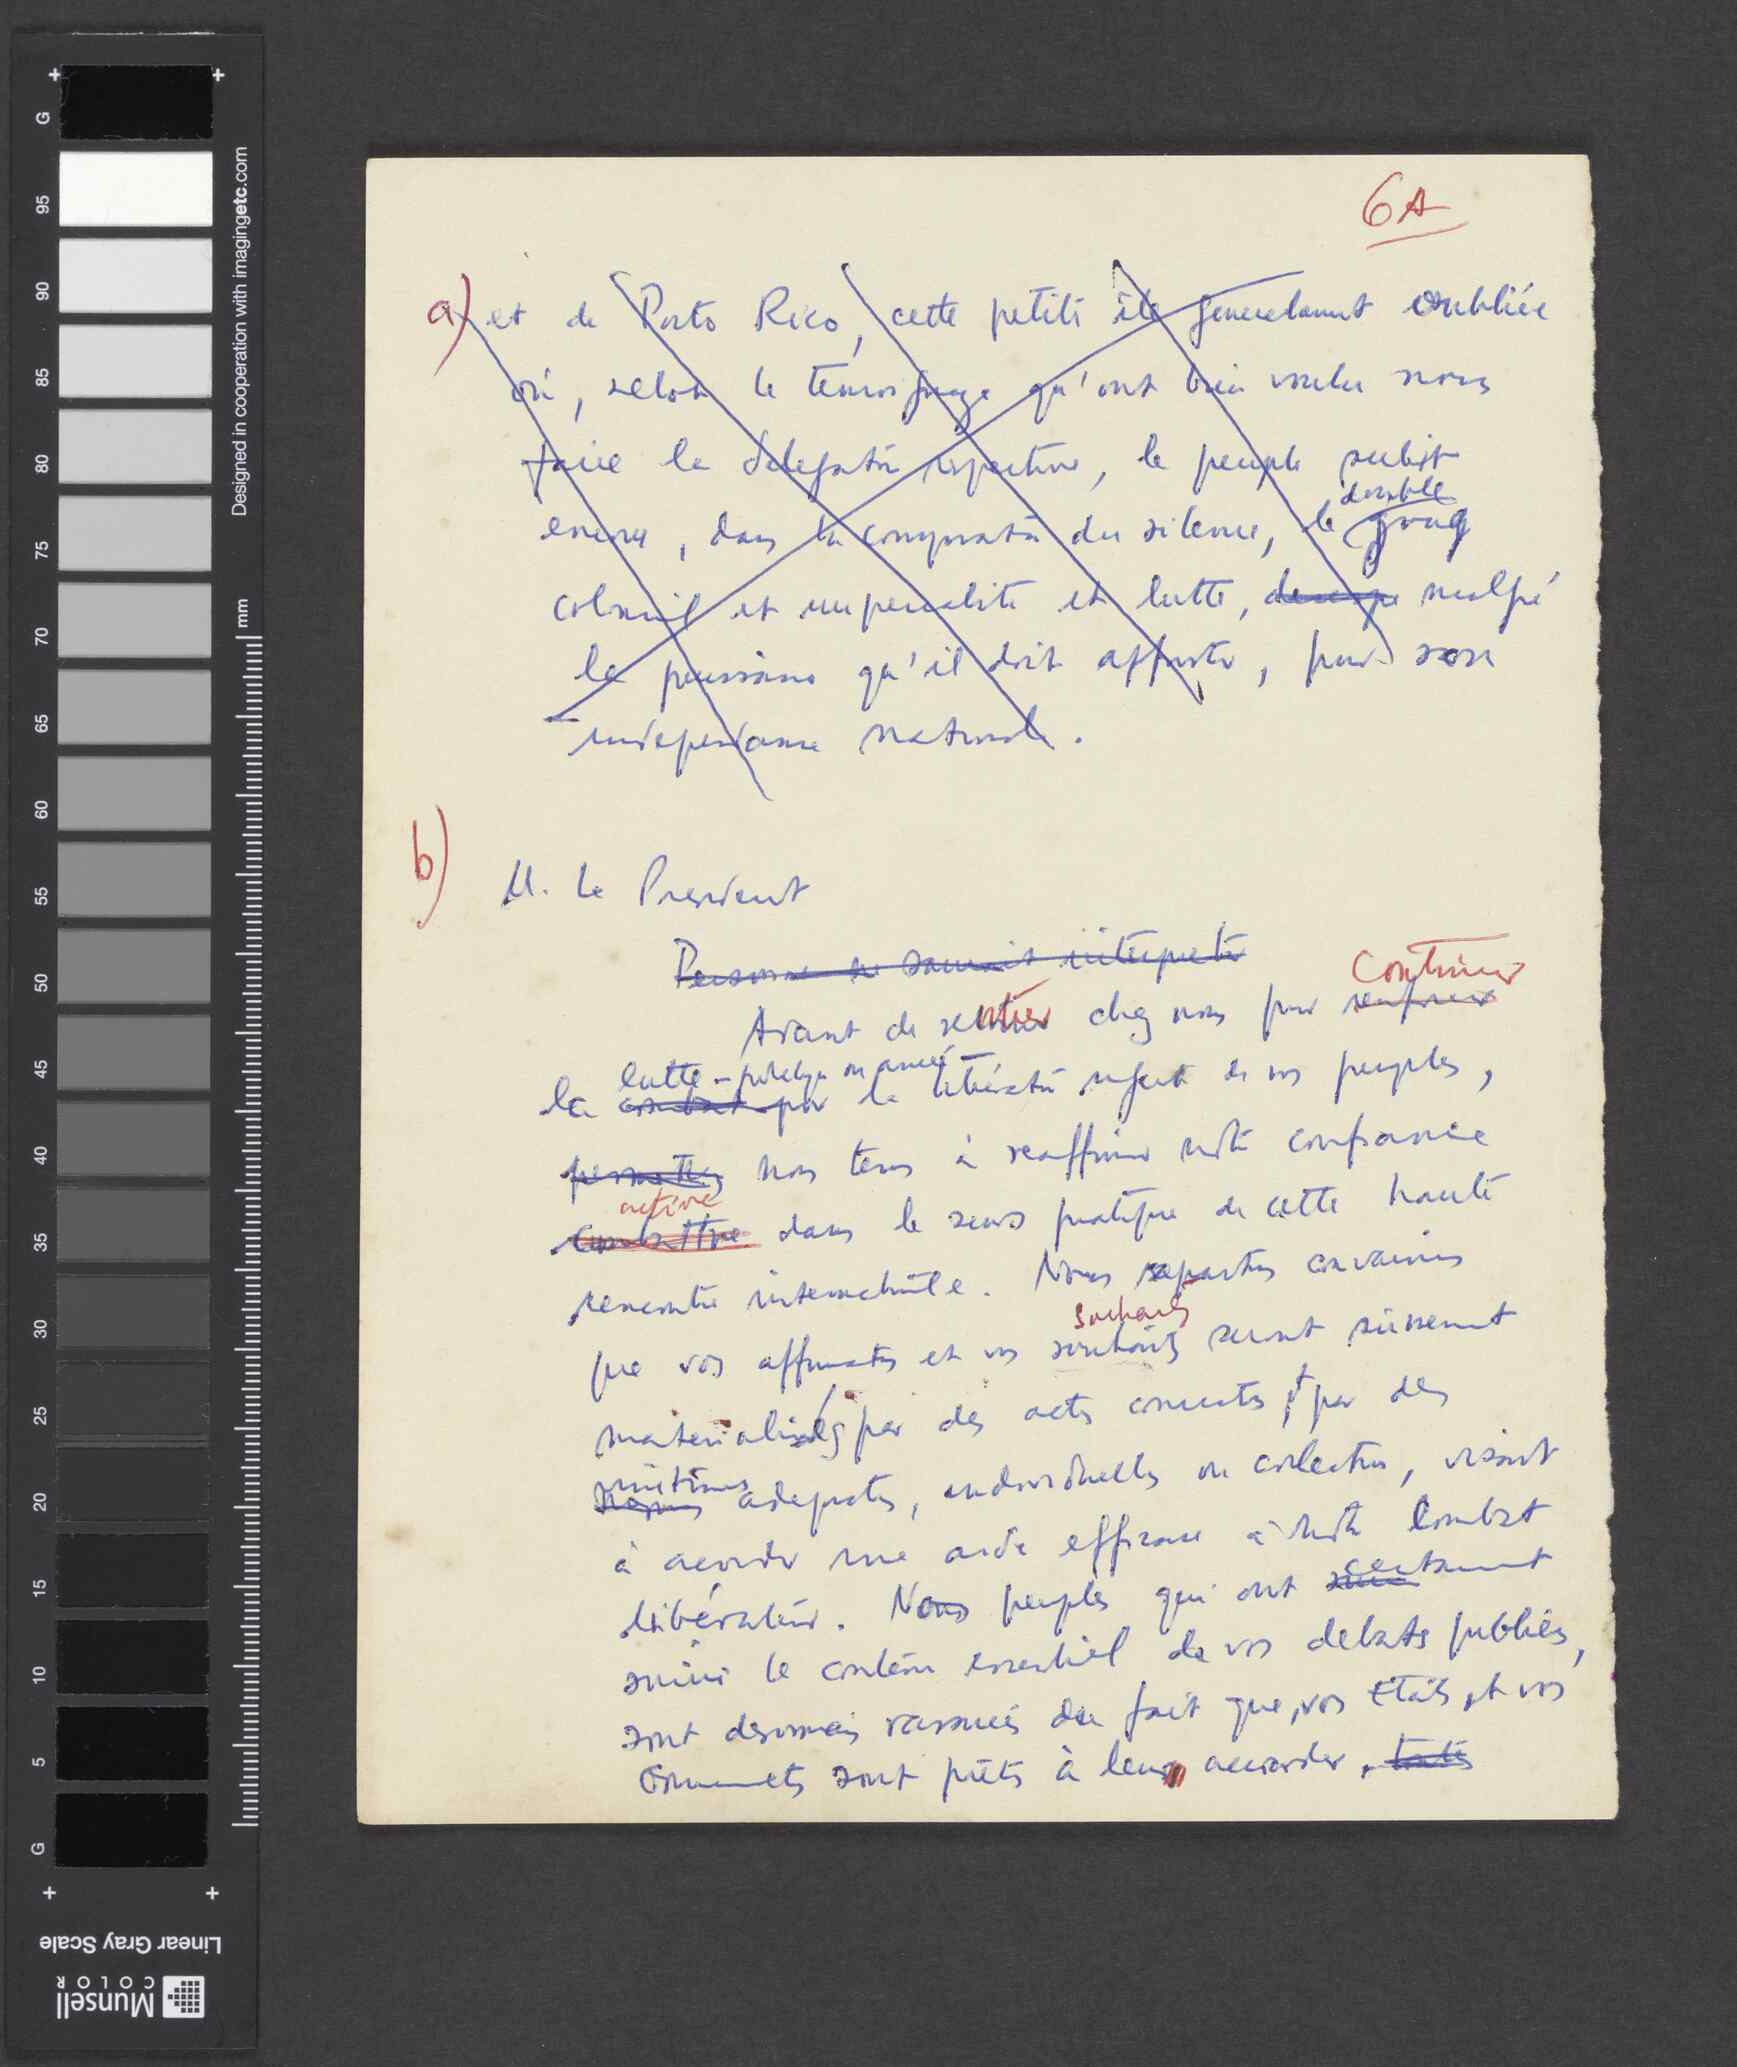 6A
a) et de Porto Rico, cette petite île generalement oubliée
où, selon le témoignage qu'ont bien voulu nous
faire la délégation respective, le peuple subit
encore, dans la conspiration du silence, le double joug
colonial et imperialiste et lutte, malgré
la puissance qu'il doit affronter, pour son
independance nationale.
b)
M. le President
Personne ne saurait interpreter
Avant de rentrer chez nous pour continuer
la lutte - politique ou armée la libération de nos peuples,
permettez nous tenons à reaffirmer notre confiance
active combattre dans le sens pratique de cette haute
rencontre internationale. Nous repartons convaincus
souhaits
que vos affirmations et vos souhaits seront sûrement
materialisés par des actes concrets, et par des
initiatives adequates, individuelles ou collectives, visant
à accorder une aide efficace à notre combat
libérateur. Nos peuples qui ont certainement
suivi le contenu essentiel de vos debats publics,
sont desormais rassurés du fait que, vos Etats et vos
sont prêts à leur accorder, toutes
G
95
90
85
80
75
70
65
60
55
50
45
40
35
30
25
20
15
10
5
G
mm
Designed in cooperation with imagingetc.com
Linear Gray Scale
Munsell
COLOR